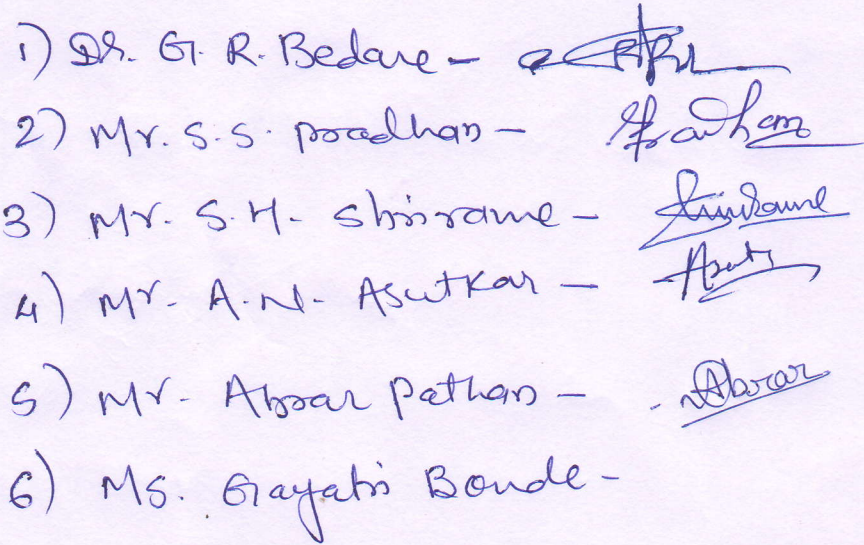 1) Dr. G. R. Bedare -
2) Mr. S.S. Pradhan - Pradhan
3) Mr. S.H. Shrirame - Shrirame
4) Mr. A.N. Asutkar -
5) Mr. Abrar Pathan - Abrar
6) Ms. Gayatri Bonde -